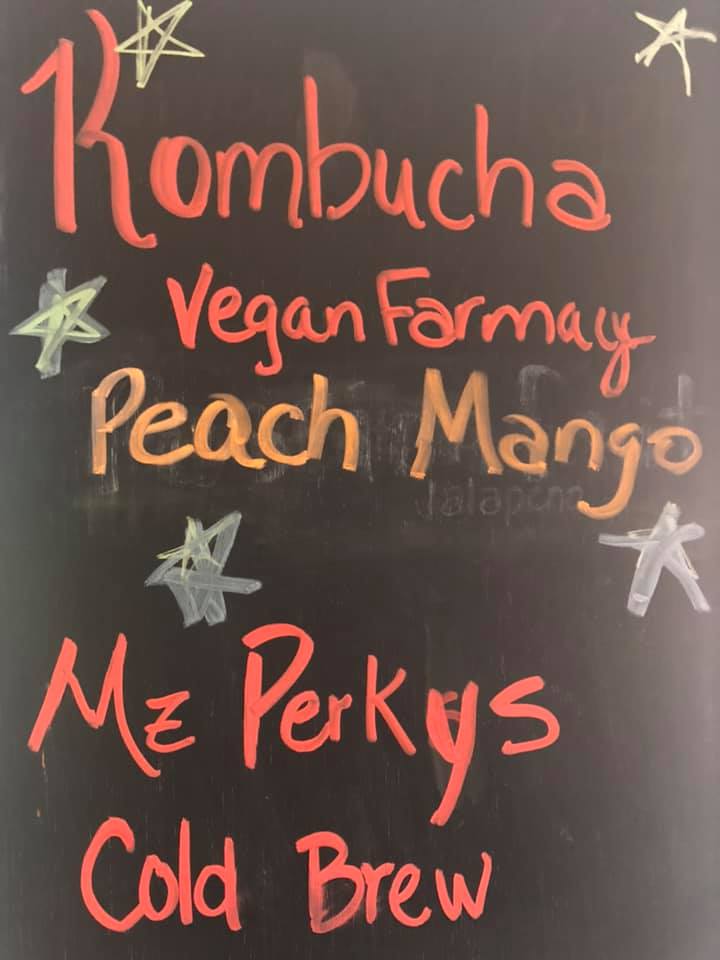 Kombucha
Vegan Farmacy
Peach Mango
Jalapeno
Mz Perkys
Cold Brew